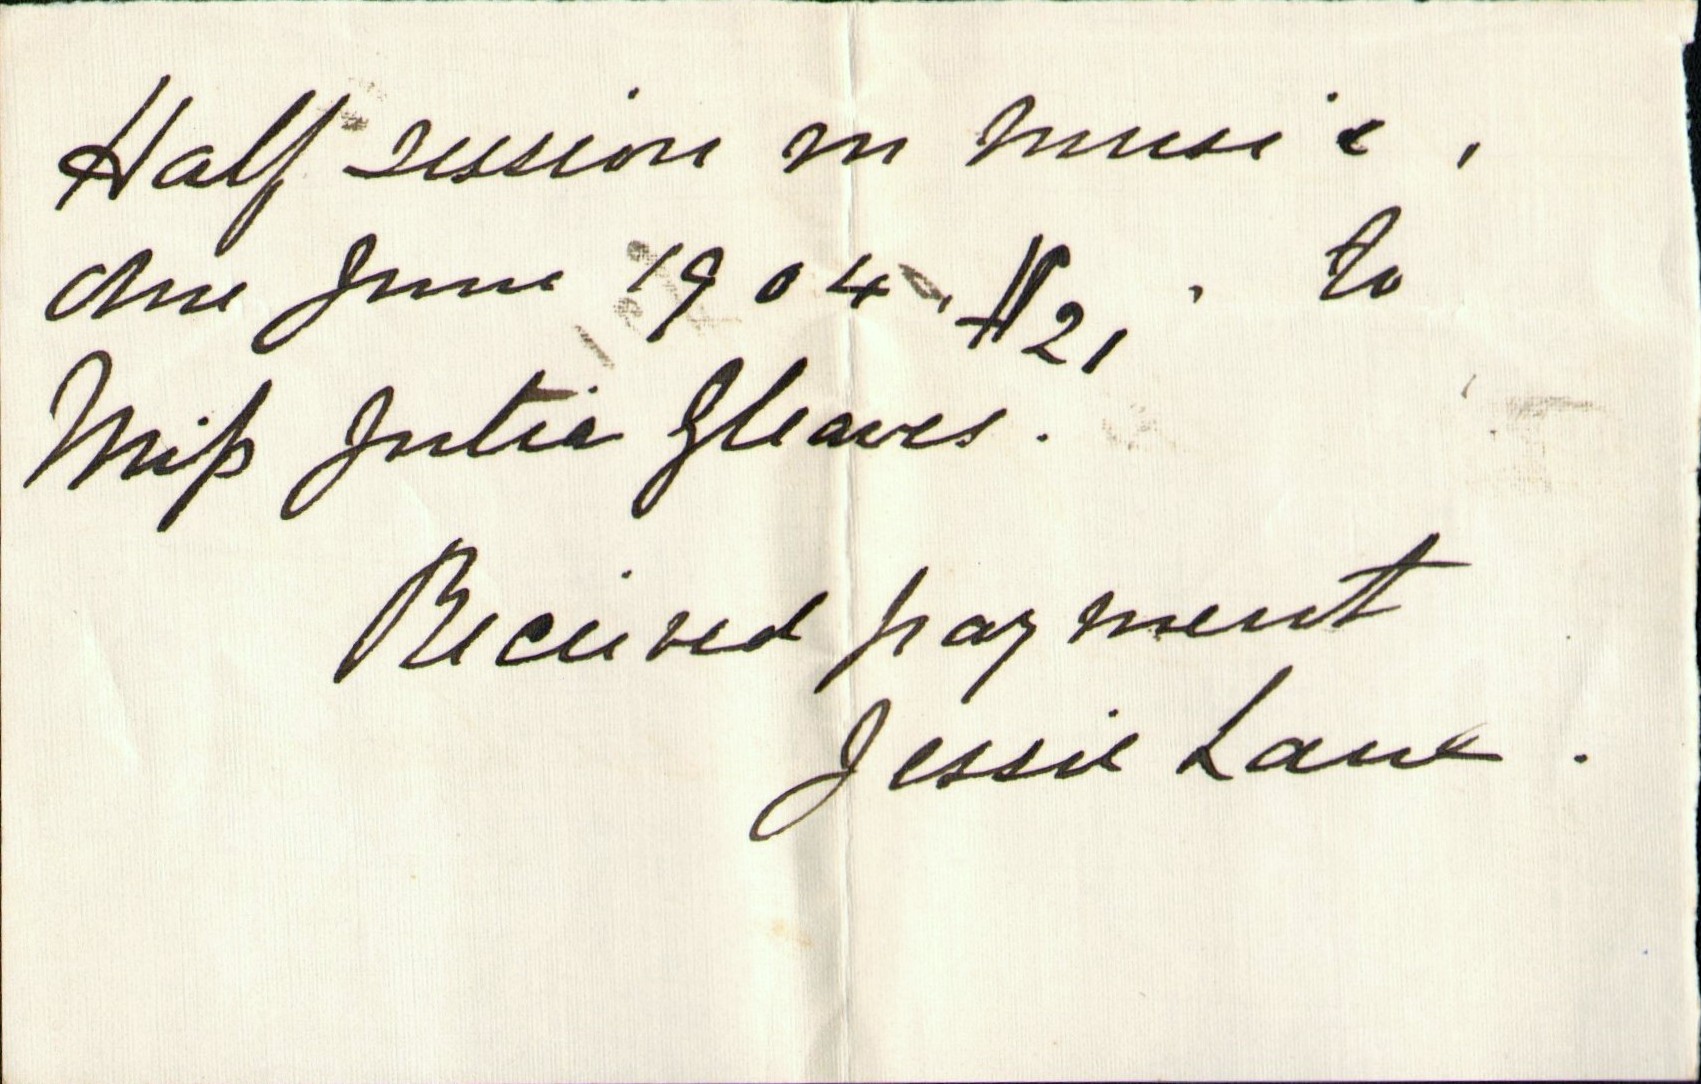 Half session in music,
due June 1904, $21, to
Miss Julia Gleaves.
Received payment
Jessie Lane.